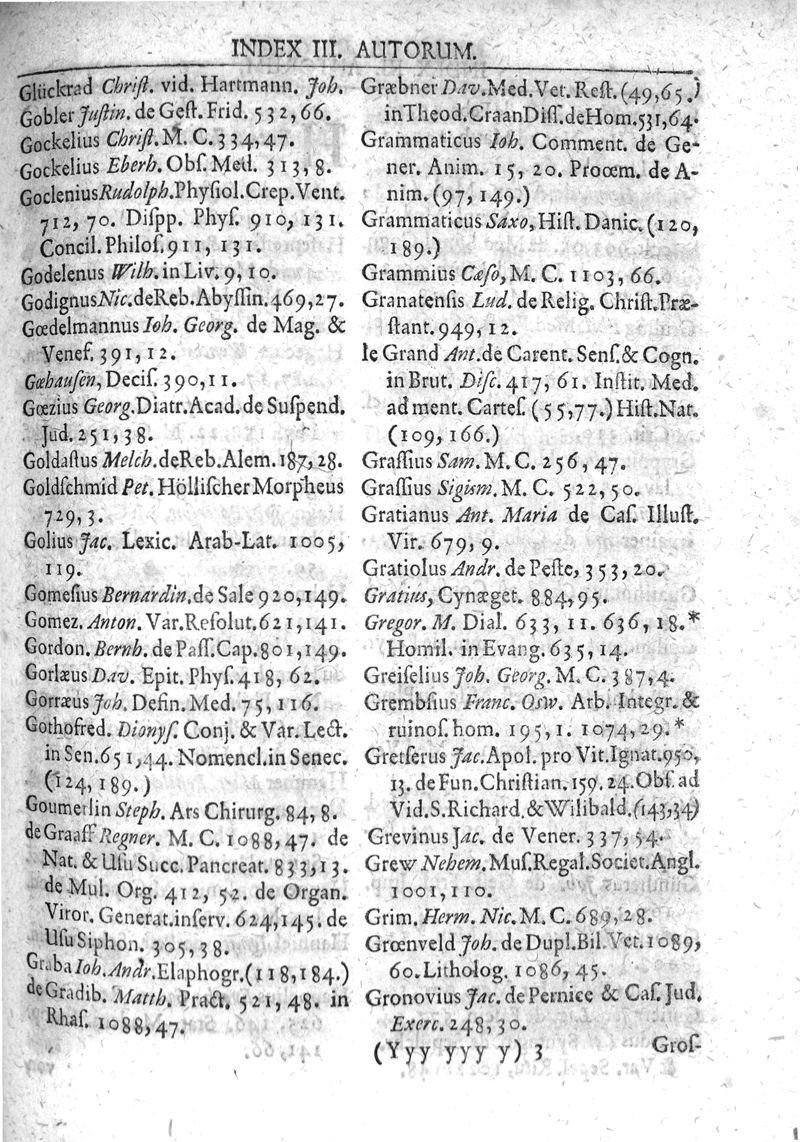 INDEX III. AUTORUM.
Glückrad Chriſt. vid. Hartmann. Joh.
Gobler Juſtin. de Geſt. Frid. 532,66.
Gockelius Chriſt. M. C. 334,47.
Gockelius Eberh. Obſ. Med. 313,8.
Goclenius Rudolph. Phyſiol. Crep. Vent.
712, 70. Diſpp. Phyſ. 910, 131.
Concil. Philoſ. 911, 131.
Godelenus Wilh. in Liv. 9, 10.
Godignus Nic. de Reb. Abyſſin. 469,27.
Gœdelmannus Ioh. Georg. de Mag. &
Veneſ. 391,12.
Gœhauſen, Deciſ. 390,11.
Gœzius Georg. Diatr. Acad. de Suſpend.
Jud. 251,38.
Goldaſtus Melch. de Reb. Alem. 187,28.
Goldſchmid Pet. Höllſcher Morpheus
729,3.
Golius Jac. Lexic. Arab-Lat. 1005,
119.
Gomeſius Bernardin. de Sale 920,149.
Gomez. Anton. Var. Reſolut. 621,141.
Gordon. Bernh. de Paſſ. Cap. 801,149.
Gorlæus Dav. Epit. Phyſ. 418, 62.
Gorræus Joh. Defin. Med. 75, 116.
Gothofred. Dionyſ. Conj. & Var. Lect.
in Sen. 651,44. Nomencl. in Senec.
(124, 189.)
Goumerlin Steph. Ars Chirurg. 84, 8.
de Graaff Regner. M. C. 1088,47. de
Nat. & Uſu Succ. Pancreat. 833,13.
de Mul. Org. 412, 52. de Organ.
Viror. Generat. inſerv. 624,145. de
Uſu Siphon. 305,38.
Graba Ioh. Andr. Elaphogr. (118,184.)
de Gradib. Matth. Pract. 521, 48. in
Rhaſ. 1088,47.
Græbner Dav. Med. Vet. Reſt. (49,65.)
in Theod. Craan Diſſ. de Hom. 531,64.
Grammaticus Ioh. Comment. de Ge-
ner. Anim. 15, 20. Proœm. de A-
nim. (97, 149.)
Grammaticus Saxo, Hiſt. Danic. (120,
189.)
Grammius Cæſo, M. C. 1103, 66.
Granatenſis Lud. de Relig. Chriſt. Præ-
ſtant. 949, 12.
le Grand Ant. de Carent. Senſ. & Cogn.
in Brut. Diſc. 417, 61. Inſtit. Med.
ad ment. Carteſ. (55,77.) Hiſt. Nat.
(109, 166.)
Graſſius Sam. M. C. 256, 47.
Graſſius Sigiſm. M. C. 522, 50.
Gratianus Ant. Maria de Caſ. Illuſt.
Vir. 679, 9.
Gratiolus Andr. de Peſte, 353, 20.
Gratius, Cynæget. 884,95.
Gregor. M. Dial. 633, 11. 636, 18.*
Homil. in Evang. 635, 14.
Greiſelius Joh. Georg. M. C. 387,4.
Grembſius Franc. Osw. Arb. Integr. &
ruinoſ. hom. 195,1. 1074,29.*
Gretſerus Jac. Apol. pro Vit. Ignat. 950,
13. de Fun. Chriſtian. 159. 24. Obſ. ad
Vid. S. Richard. & Wilibald. (143,34)
Grevinus Jac. de Vener. 337, 54.
Grew Nehem. Muſ. Regal. Societ. Angl.
1001, 110.
Grim. Herm. Nic. M. C. 689,28.
Grœnveld Joh. de Dupl. Bil. Vet. 1089,
60. Litholog. 1086, 45.
Gronovius Jac. de Pernice & Caſ. Jud.
Exerc. 248, 30.
(Yyy yyy y) 3 Groſ-